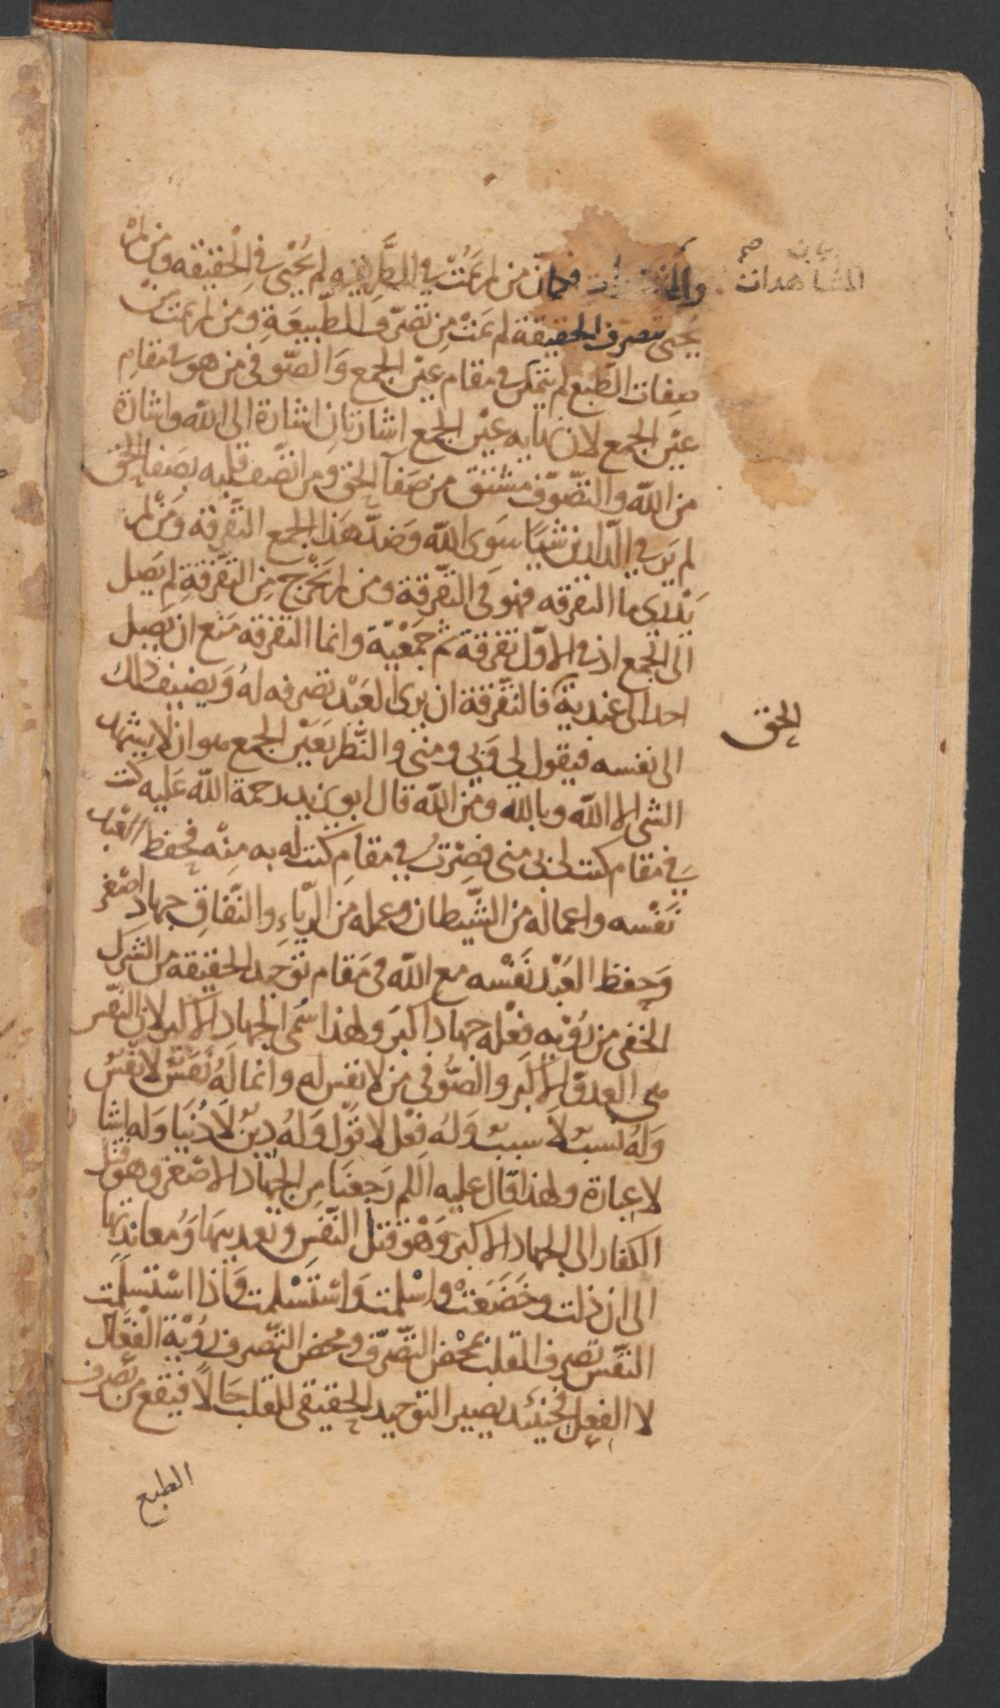 بيان صح
المشاهدات
فان من لم يمت في الطريقه لم يُحْيىَ في الحقيقه ومن لم
يحيى بتصرف الحقيقة لم يمت مِن تصرّف الطبيعَةِ ومن لم يمت عن
صفات الطبع لم يتمكن في مقام عين الجمع وَالصّوفي من هو في مقام
عيْن الجمع لان نهايه عيْن الجمع اشارتان اشارة الى الله واشارة
من الله والتصّوف مشتق من صَفآ الحق ومن اتصّف قلبه بصفا الحق
لم يَر في الدّارين شيئا سِوَى الله وَضدّ هَذا الجمع التَّفرقة وَمَن لم
يَدْرى ما التفرقه فهو في التّفرقة ومن لم يَخْرج مِن التفَرّقةِ لم يَصِل
الى الجمع اذ في الاوّل تفرقة ثم جَمعْيّة وانما التفرقه مَنع ان يَصِل
احد الى عنديةِ فالتفَّرقة ان يرى العَبْد تصرفه لهُ وَيضيف ذلك
الحق
الى نفسه فيقول لِي وَبِي ومِنى والنَّظر بَعَيْن الجمع هو ان لا يثبت
الشى الا الله وبالله ومن الله قال ابو يزيد رحمة الله عَليه كنت
في مقام كنت لى بى منى فصِرْتُ في مقام كنت له به مِنْه فحفظ العَبد
نَفْسه واعماله من الشّيطان وعمله مِن الرِّياءِ والنّفاقِ جهاد اصْغر
وَحِفظ العَبْد نَفْسه مع الله في مَقام توَحيد الحقيقه من الشرك
الخفى من رُؤيه فعْله جهاد اكبرَ ولهذا سُمى الجهاد الاكبر لان النفس
هى العدوّ الاكبر والصُّوفى من لا نفس له وانما لهُ نَفَسٌ لا نَفْسٌ
وَلهُ نسبٌ لا سببٌ وَلهُ فعْل لا قوّل وَلهُ دينٌ لا دُنيا وَله اشارة
لا عبارة ولهذا قال عليه السّلم رَجعنَا مِن الجهاد الاصْغر وهو قتل
الكفار الى الجهاد الاكبر وَهْوَ قتل النّفس وتعديبهَا وَمُعاندتها
الى ان ذلت وخَضَعَتْ واسْلمت وَاسْتَسْلمت وَاذا اسْتسلَمت
النفْس تصرف القلب بمحْض التّصرّف ومحض التّصرف رؤيَة الفعَّال
لا الفعل فحينئد يصير التوحيد الحقيقى للقلب حَالًا فيقع من تصّرف
الطبع